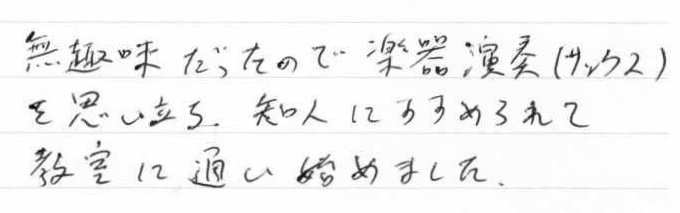 無趣味だったので楽器演奏(サックス)
を思い立ち、知人にすすめられて
教室に通い始めました。